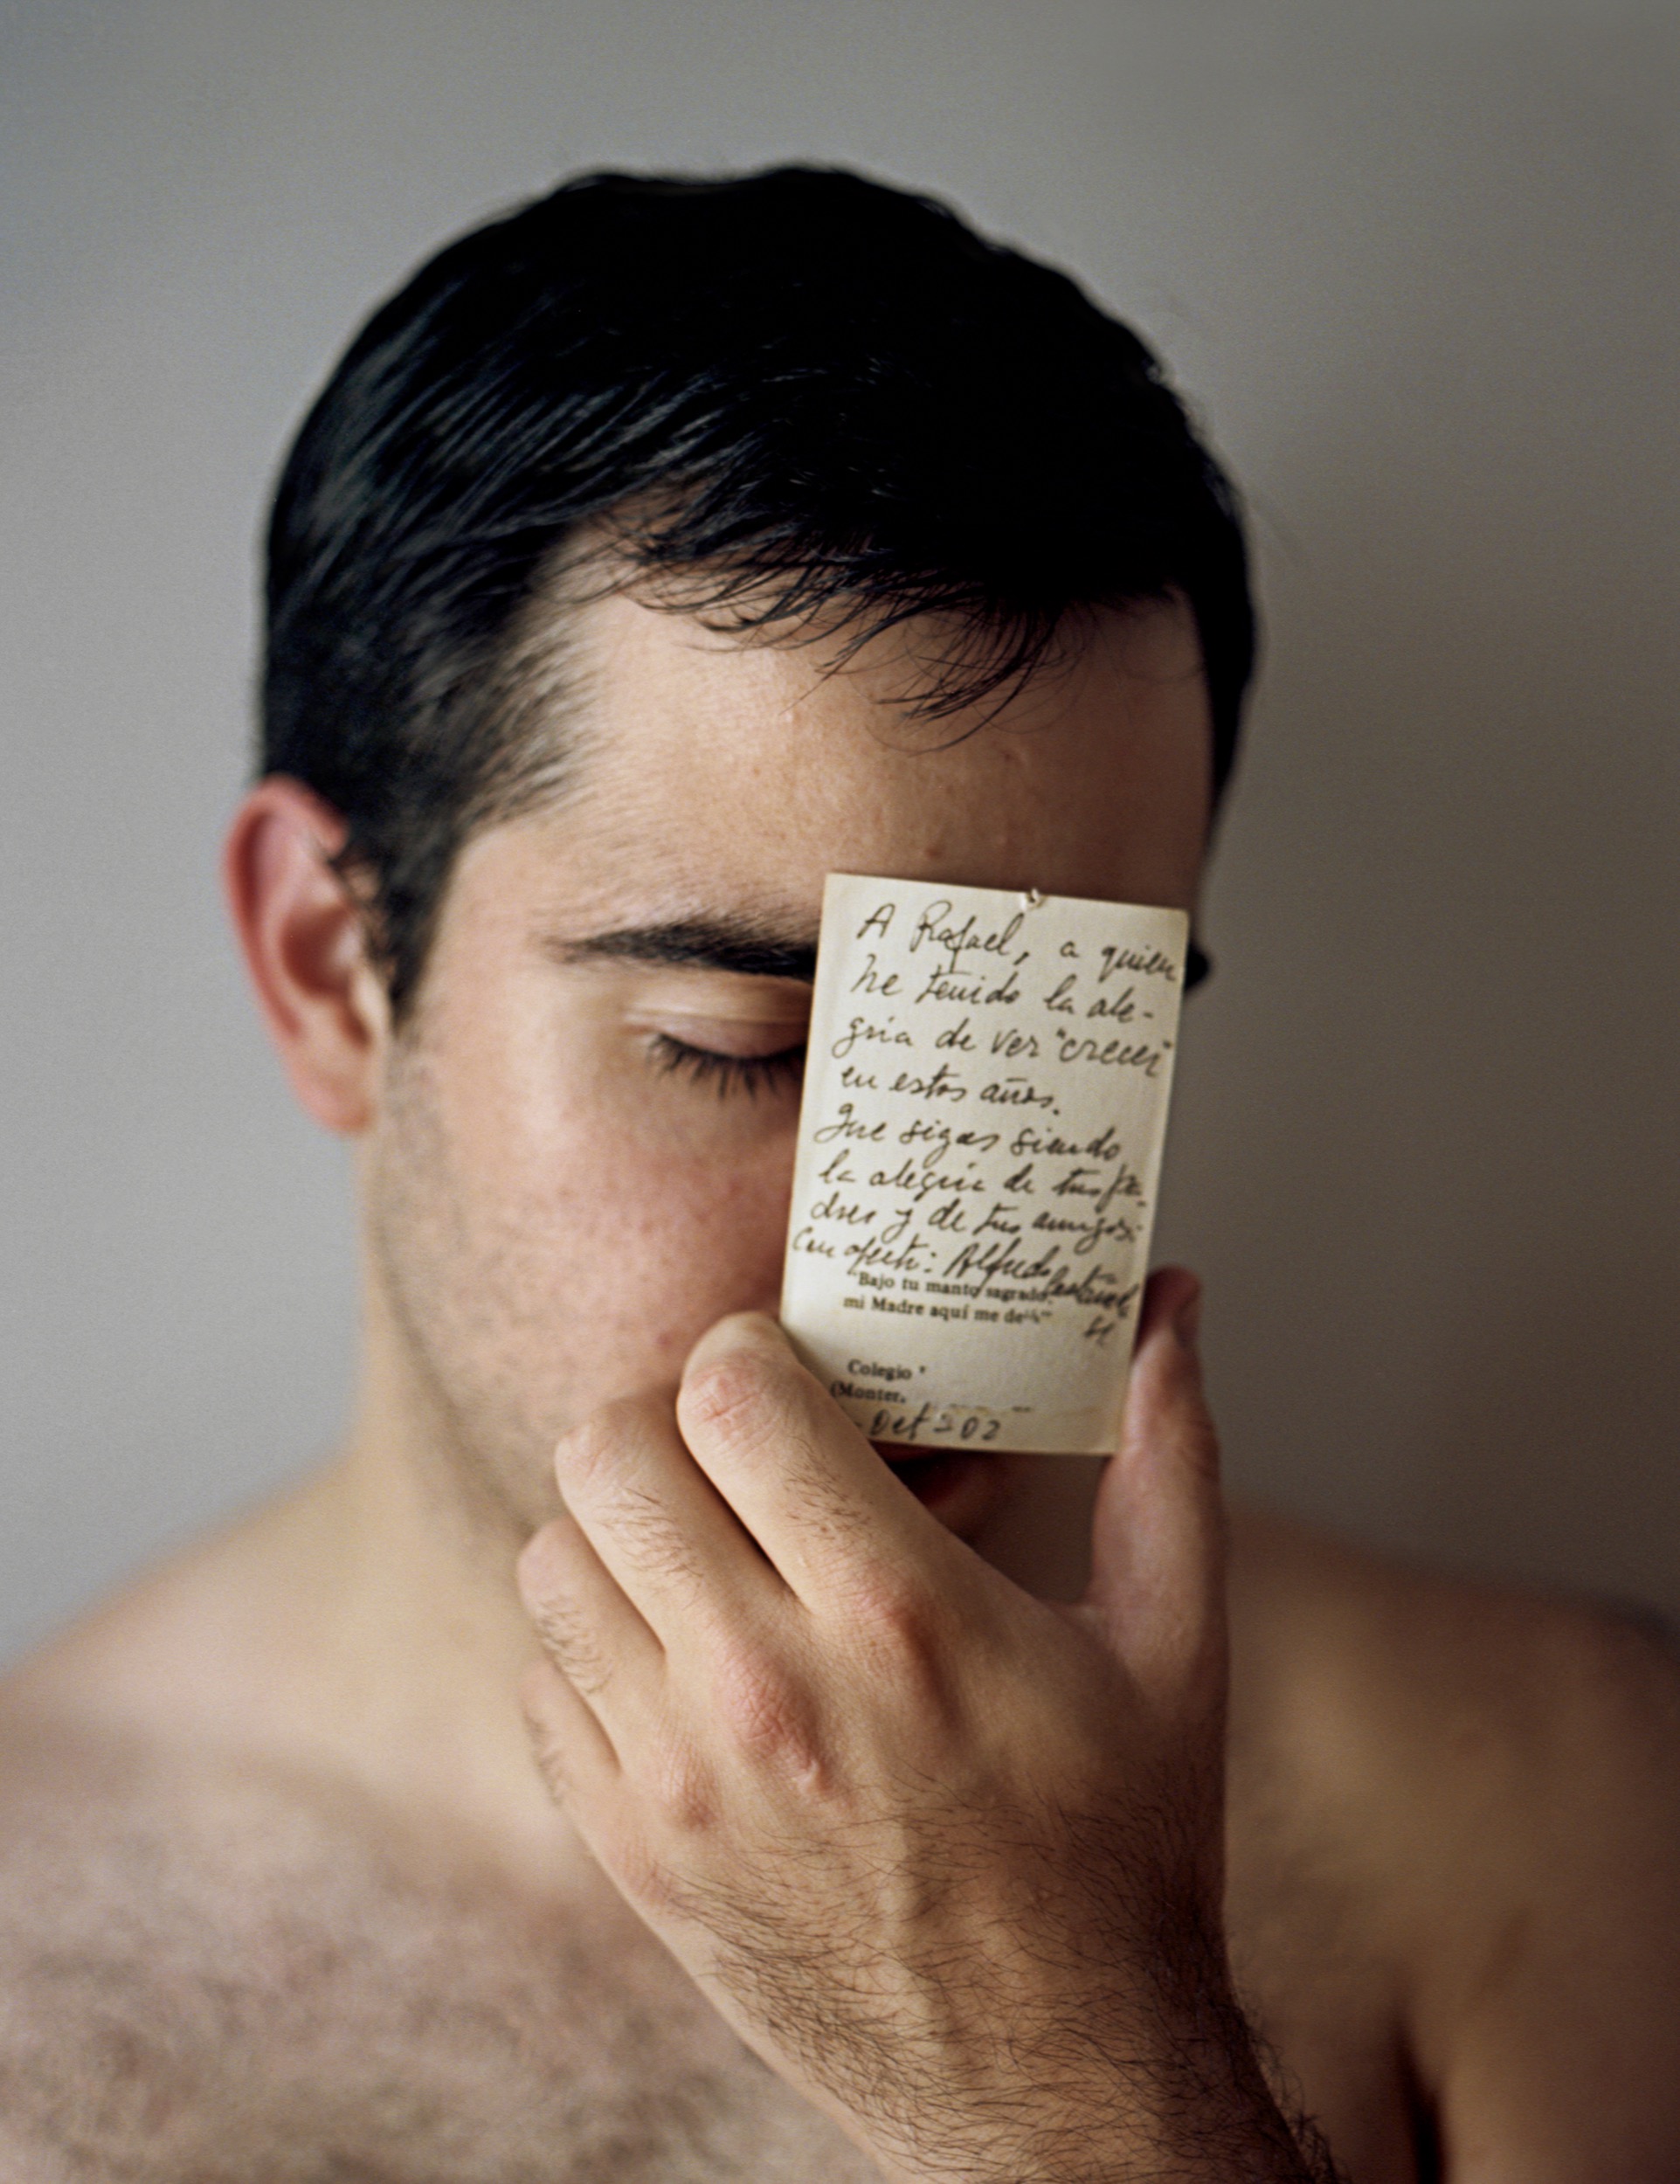 A Rafael, a quien
he tenido la ale-
gría de ver "crecer"
en estos años.
Que sigas siendo
la alegría de tus pa-
dres y de tus amigos.
Con afecto: Alfredo
"Bajo tu manto sagrado,
mi Madre aquí me
Colegio
(Monter.
Oct 202